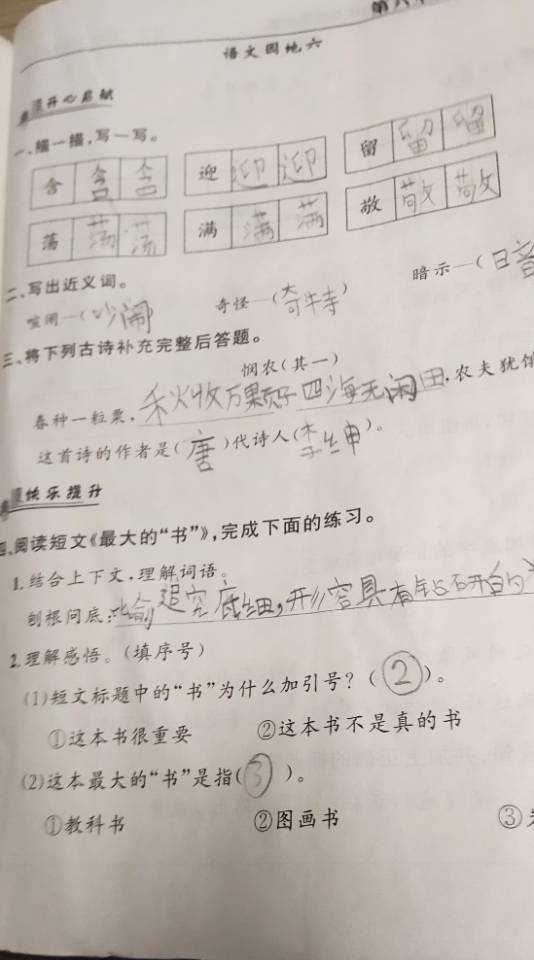 第六
语文园地六
提升心启航
一、描一描,写一写。
含 含 含 迎 迎 迎 留 留 留
荡 荡 荡 满 满 满 敬 敬 敬
二、写出近义词。
喧闹—(吵闹) 奇怪—(奇特) 暗示—(日音
三、将下列古诗补充完整后答题。
悯农(其一)
春种一粒粟,秋收万颗子 四海无闲田,农夫犹饿
这首诗的作者是(唐)代诗人(李绅)。
快乐提升
四、阅读短文《最大的“书”》,完成下面的练习。
1.结合上下文,理解词语。
刨根问底:比喻追究底细,形容具有钻研的
2.理解感悟。(填序号)
(1)短文标题中的“书”为什么加引号?(②)。
①这本书很重要 ②这本书不是真的书
(2)这本最大的“书”是指(③)。
①教科书 ②图画书 ③